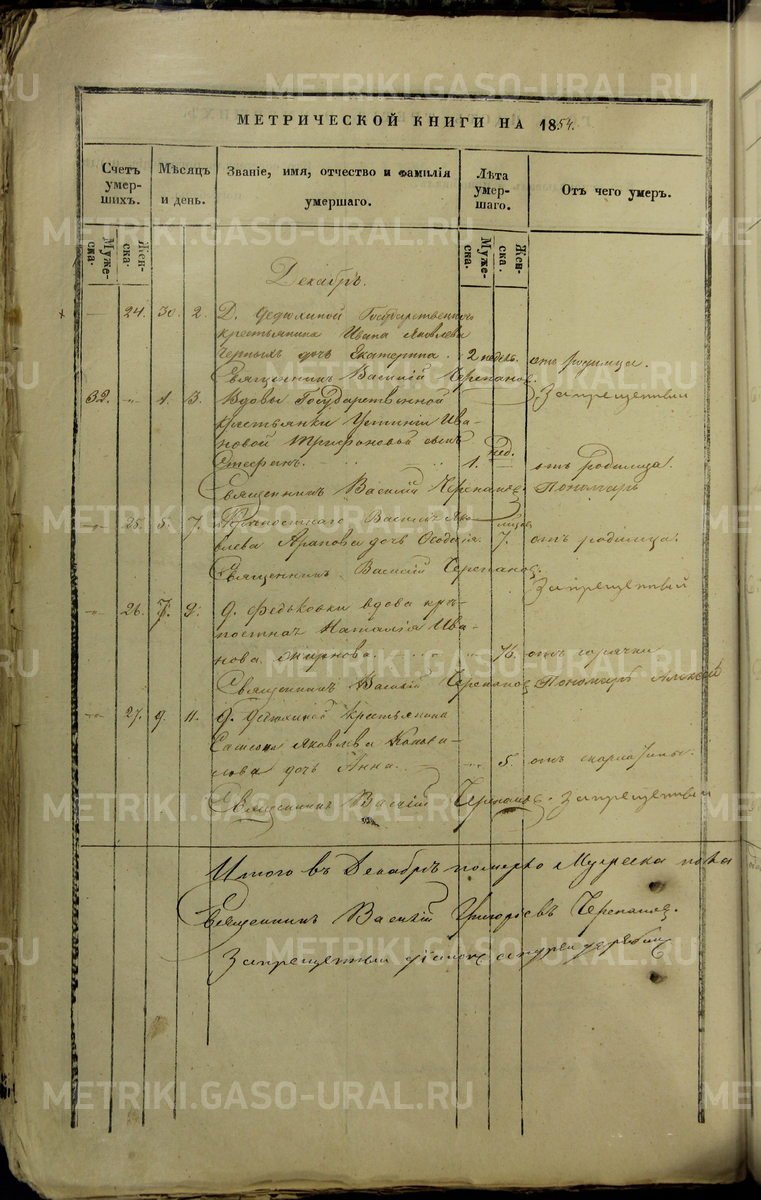 МЕТРИЧЕСКОЙ КНИГИ НА 1854.
Счетъ умер- шихъ.
Мѣсяцъ и день.
Званіе, имя, отчество и фамилія умершаго.
Лѣта умер- шаго.
Отъ чего умеръ.
Муже- ска.
Жен- ска.
Муже- ска.
Жен- ска.
Декабрь.
24. 30. 2. Д. Федюлиной Государственнаго
крестьянина Ивана Яковлева
Черныхъ дочь Екатерина. 2 недѣл. отъ родимца.
Священникъ Василій Черепановъ.
Запрещенный
32. 1. 3. Вдовы Государственной
крестьянки Устиніи Ива-
новой Трифоновой сынъ
Стефанъ. 1. нед. отъ родимца.
Священникъ Василій Черепановъ. Пономарь
25. 5. 7. Василія Яко-
влева Арапова дочь 7. отъ родимца.
Священникъ Василій Черепановъ.
Запрещенный
26. 7. 9. Д. Федьковки вдова крѣ-
постная Наталія Ива-
нова 76. отъ горячки
Священникъ Василій Черепановъ Пономарь Алексѣй
27. 9. 11. Д. Федюлиной крестьянина
Самсона Яковлева
дочь Анна. 5. отъ скарлатины.
Священникъ Василій Черепановъ. Запрещенный
Итого въ Декабрѣ померло Мужеска пола
Священникъ Василій Григорьевъ Черепановъ.
Запрещенный діаконъ Андрей
METRIKI.GASO-URAL.RU